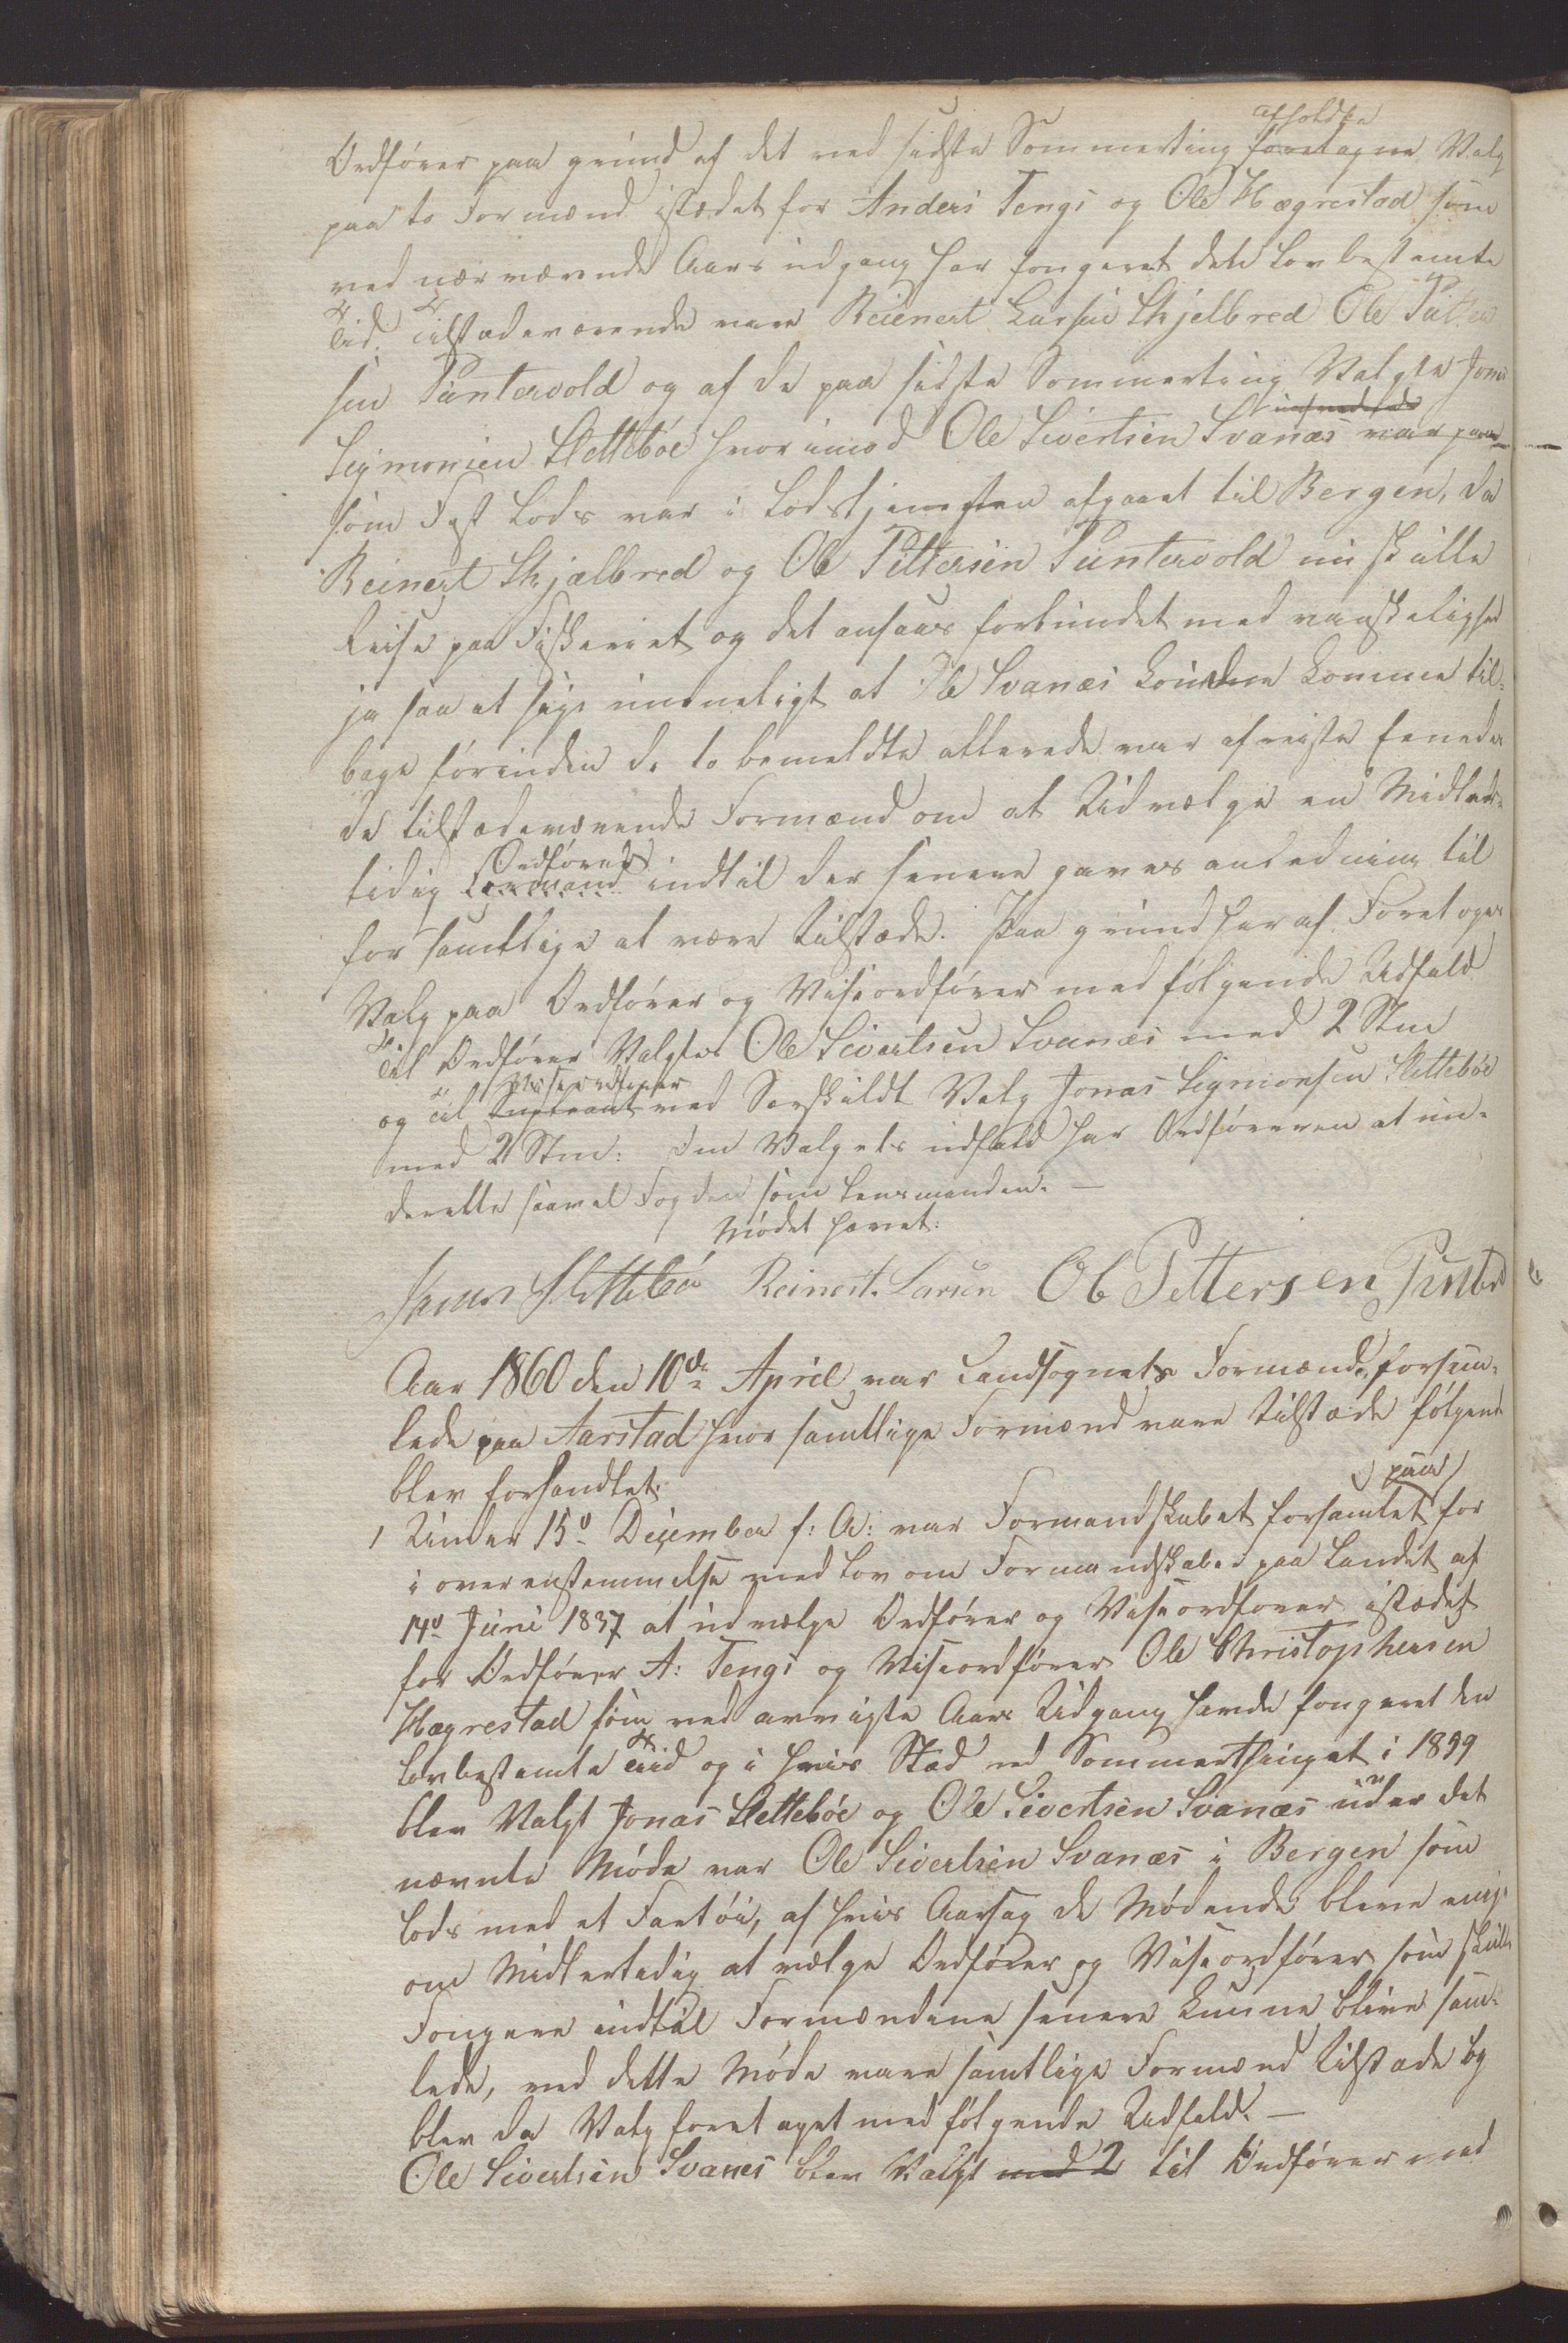 Ordfører paa grund af det ved sidste Sommerting afholdte foretagne Valg
paa to Formænd istædet for Anders Tengs og Ole Hægrestad som
ved nærværende Aars udgang har fongeret dete Lovbestemte
Tid. Tilstædeværende vare Reienert Larsen Skjelbred Ole Pitter
sen Puntervold og af de paa sidste Sommerting Valgte Jonas
Sigmonsen Slettebøe hvorimod Ole Sivertsen Svanæs var paa
som Fast Lods var i Lodstjenesten afgaaet til Bergen, da
Reinert Skjælbred og Ole Pittersen Puntervold nu skulle
Reise paa Fiskeriet og det ansaaes forbundet med vanskelighed
ja saa at sige umueligt at Ole Svanæs kunde komme til-
bage førinden de to bemeldte allerede var afreiste Enedes
de tilstædeværende Formænd om at Udvælge en Midler-
tidig Ordfører Formand indtil der senere gaves anledning til
for samtlige at være tilstæde. Paa grund heraf Foretoges
Valg paa Ordfører og Viseordfører med følgende Udfald
Til Ordfører Valgtes Ole Sivertsen Svanæs med 2 Stm
og til Viseordfører Supleant ved Særskildt Valg Jonas Sigmonsen Slettebøe
med 2 Stm: Om Valgets udfald har Ordføreren at un-
derette saavel Fogden som Lensmanden. —
Mødet hævet:
Jonas Slettebø Reinert. Larsen Ole Pettersen Punterv
Aar 1860 den 10de April var Landsognets Formænd forsam-
lede paa Aarstad hvor samtlige Formænd vare tilstæde følgende
blev forhandlet.
1 Under 15d December f: A: var Formandskabet forsamlet paa for
i overenstemmelse med Lov om Formandskaber paa Landet af
14d Juni 1837 at udvælge Ordfører og Viseordfører istædet
for Ordfører A: Tengs og Viseordfører Ole Christophersen
Hægrestad som ved avvigte Aars Udgang havde fongeret den
Lovbestemte Tid og i hvis Stæd ved Sommerthinget i 1859
blev Valgt Jonas Slettebøe og Ole Sivertsen Svanæs under det
nævnte Møde var Ole Sivertsen Svanæs i Bergen som
Lods med et Fartøi, af hvis Aarsag de Mødende bleve enige
om Midlertidig at vælge Ordfører og Viseordfører som skulle
Fongere indtil Formændene senere kunne blive sam-
lede, ved dette Møde vare samtlige Formænd tilstæde og
blev da Valg foretaget med følgende Udfald. —
Ole Sivertsen Svanes blev Valgt med 2 til Ordfører med